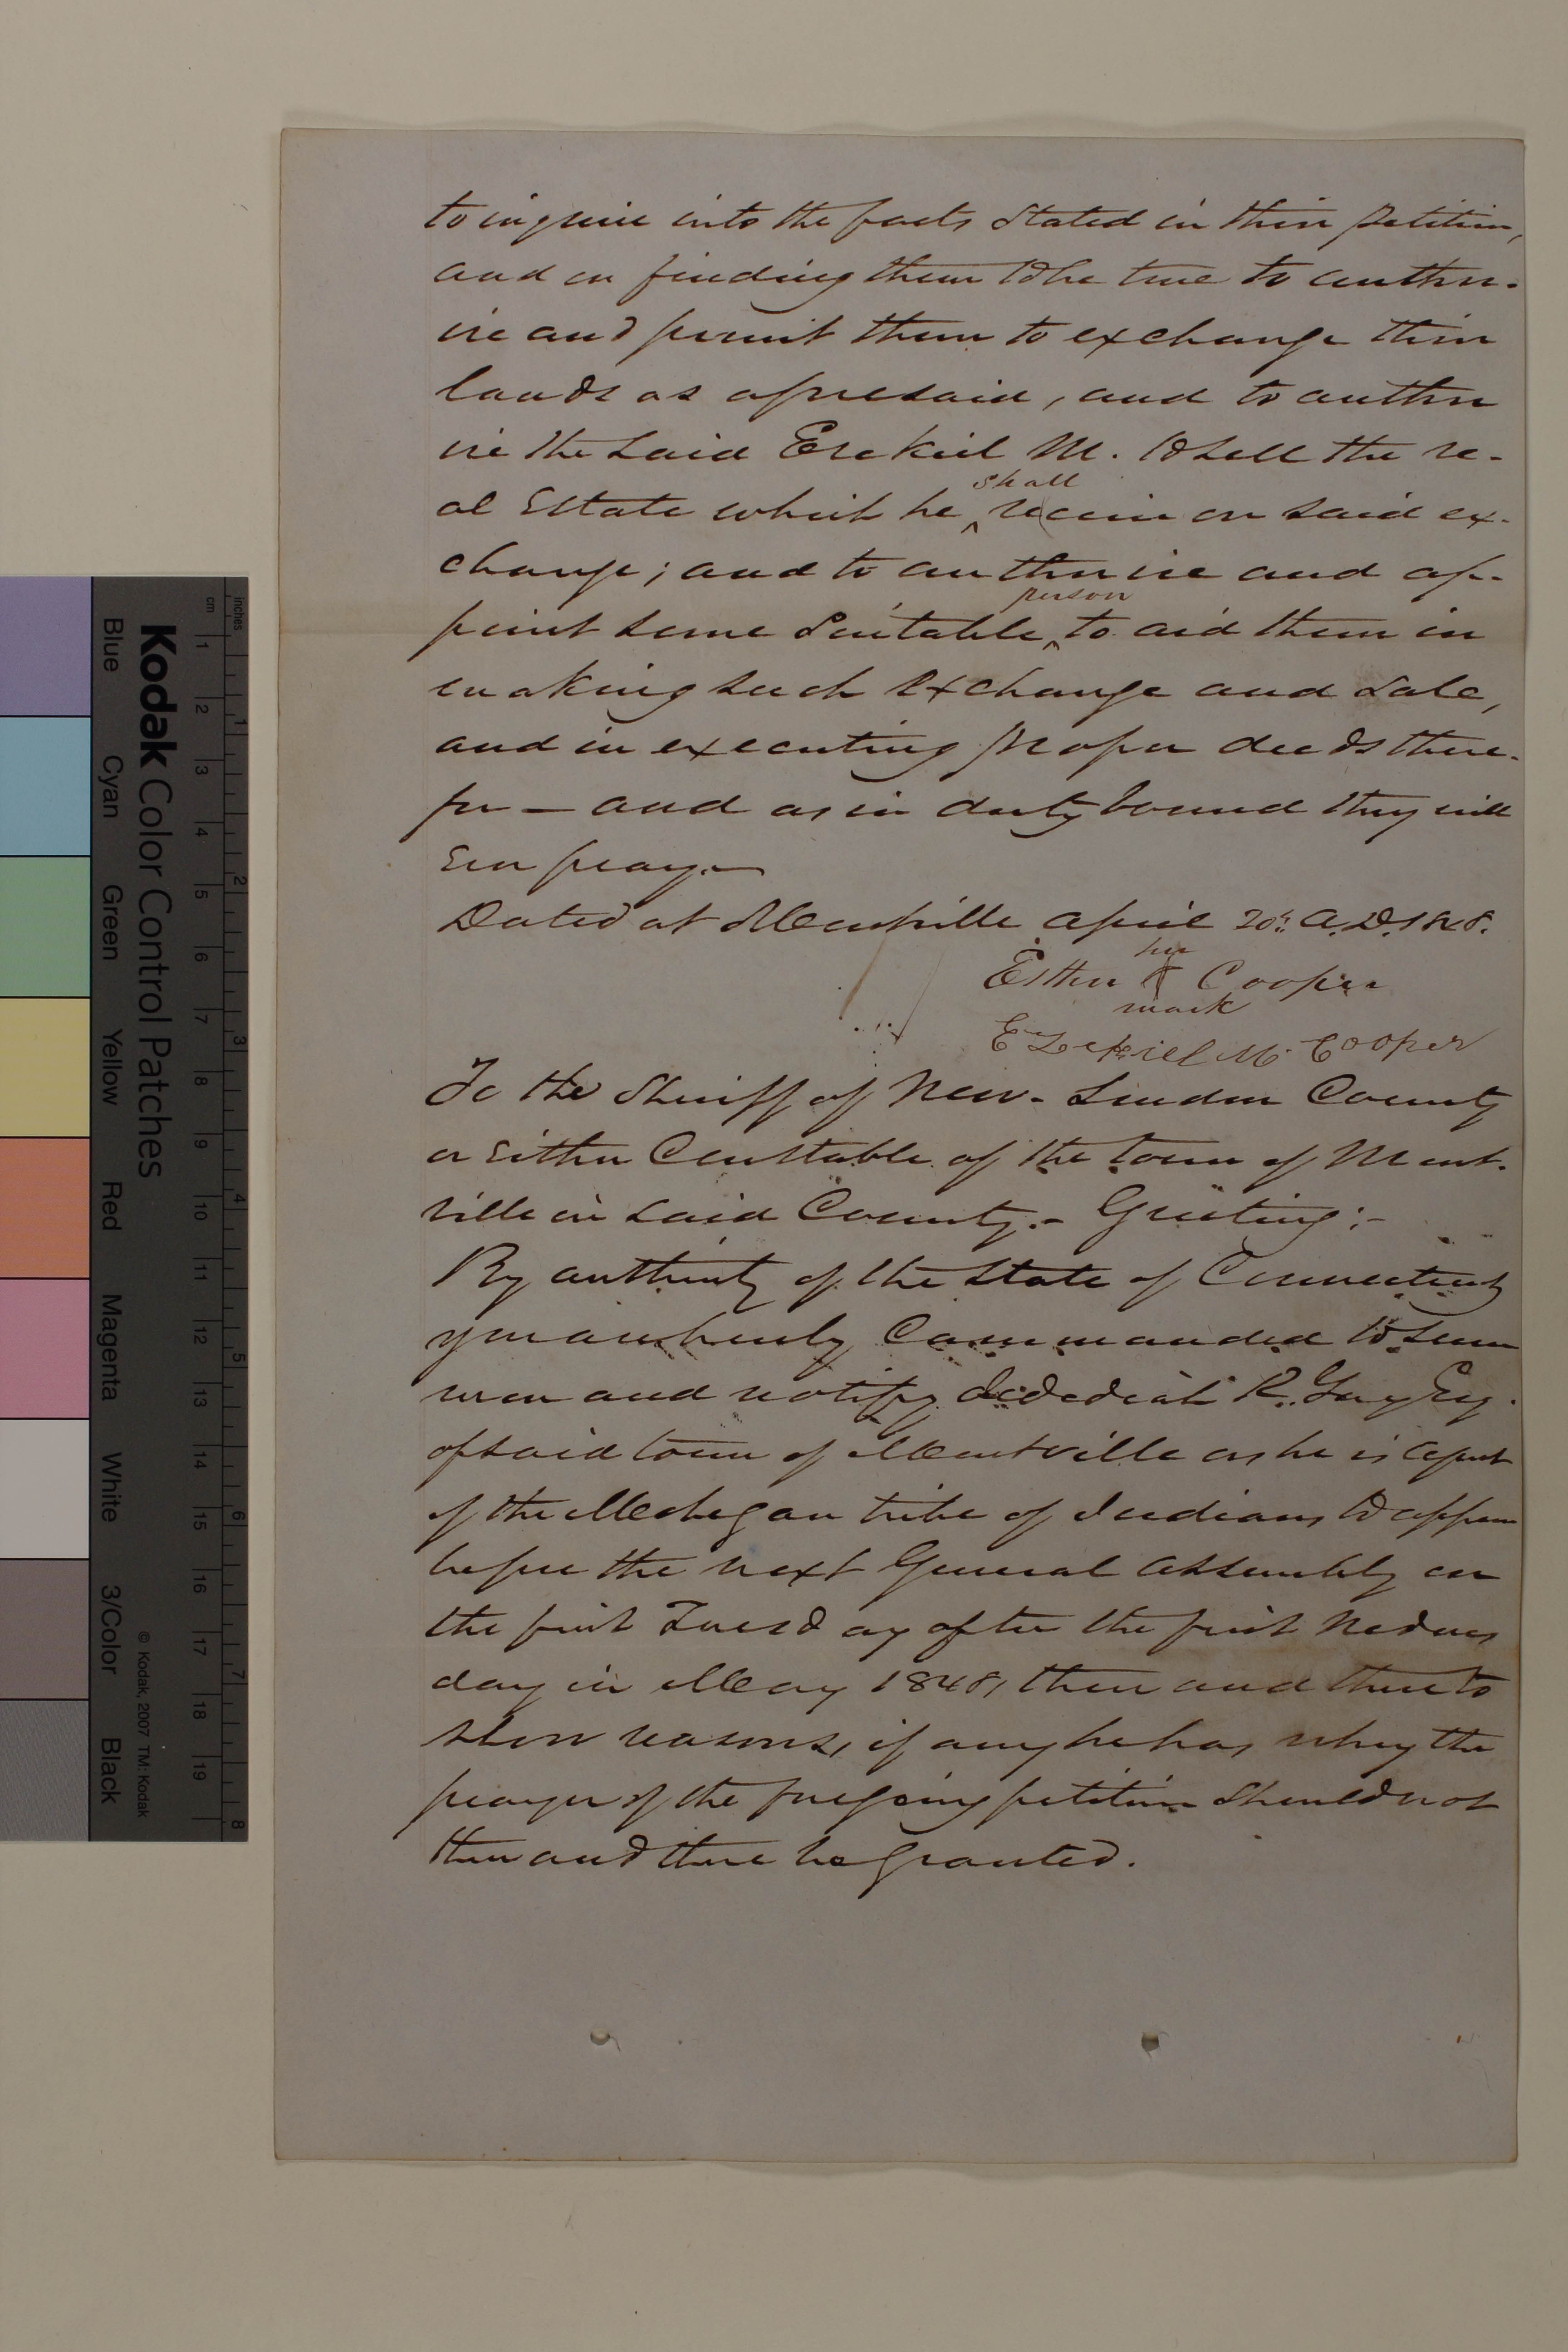 to inquire into the facts stated in their petition,
and on finding them to be true to author-
ize and permit them to exchange their
lands as aforesaid, and to author
ize the said Ezekiel M. to sell the re-
al Estate which he ^ shall receive on said ex-
change; and to authorize and ap-
point some suitable ^ person to aid them in
making such exchange and sale,
and in executing proper deeds there-
for — and as in duty bound they will
ever pray.—
Dated at Montville April 20th A.D. 1848.
her
Esther X Cooper
mark
Ezekiel M. Cooper
To the Sheriff of New-London County
or either Constable of the town of Mont-
ville in said County.- Greeting:-
By authority of the State of Connecticut
you are hereby Commanded to sum
mon and notify Jedediah R. Gay Esq.
of said town of Montville as he is agent
of the Mohegan tribe of Indians to appear
before the next General Assembly on
the first Tuesday after the first Wednes
day in May 1848, then and there to
show reasons, if any he has, why the
prayer of the foregoing petition should not
then and there be granted.
Kodak Color Control Patches
Blue Cyan Green Yellow Red Magenta White 3/Color Black
© Kodak, 2007 TM: Kodak
inches 1 2 3 4 5 6 7 8
cm 1 2 3 4 5 6 7 8 9 10 11 12 13 14 15 16 17 18 19